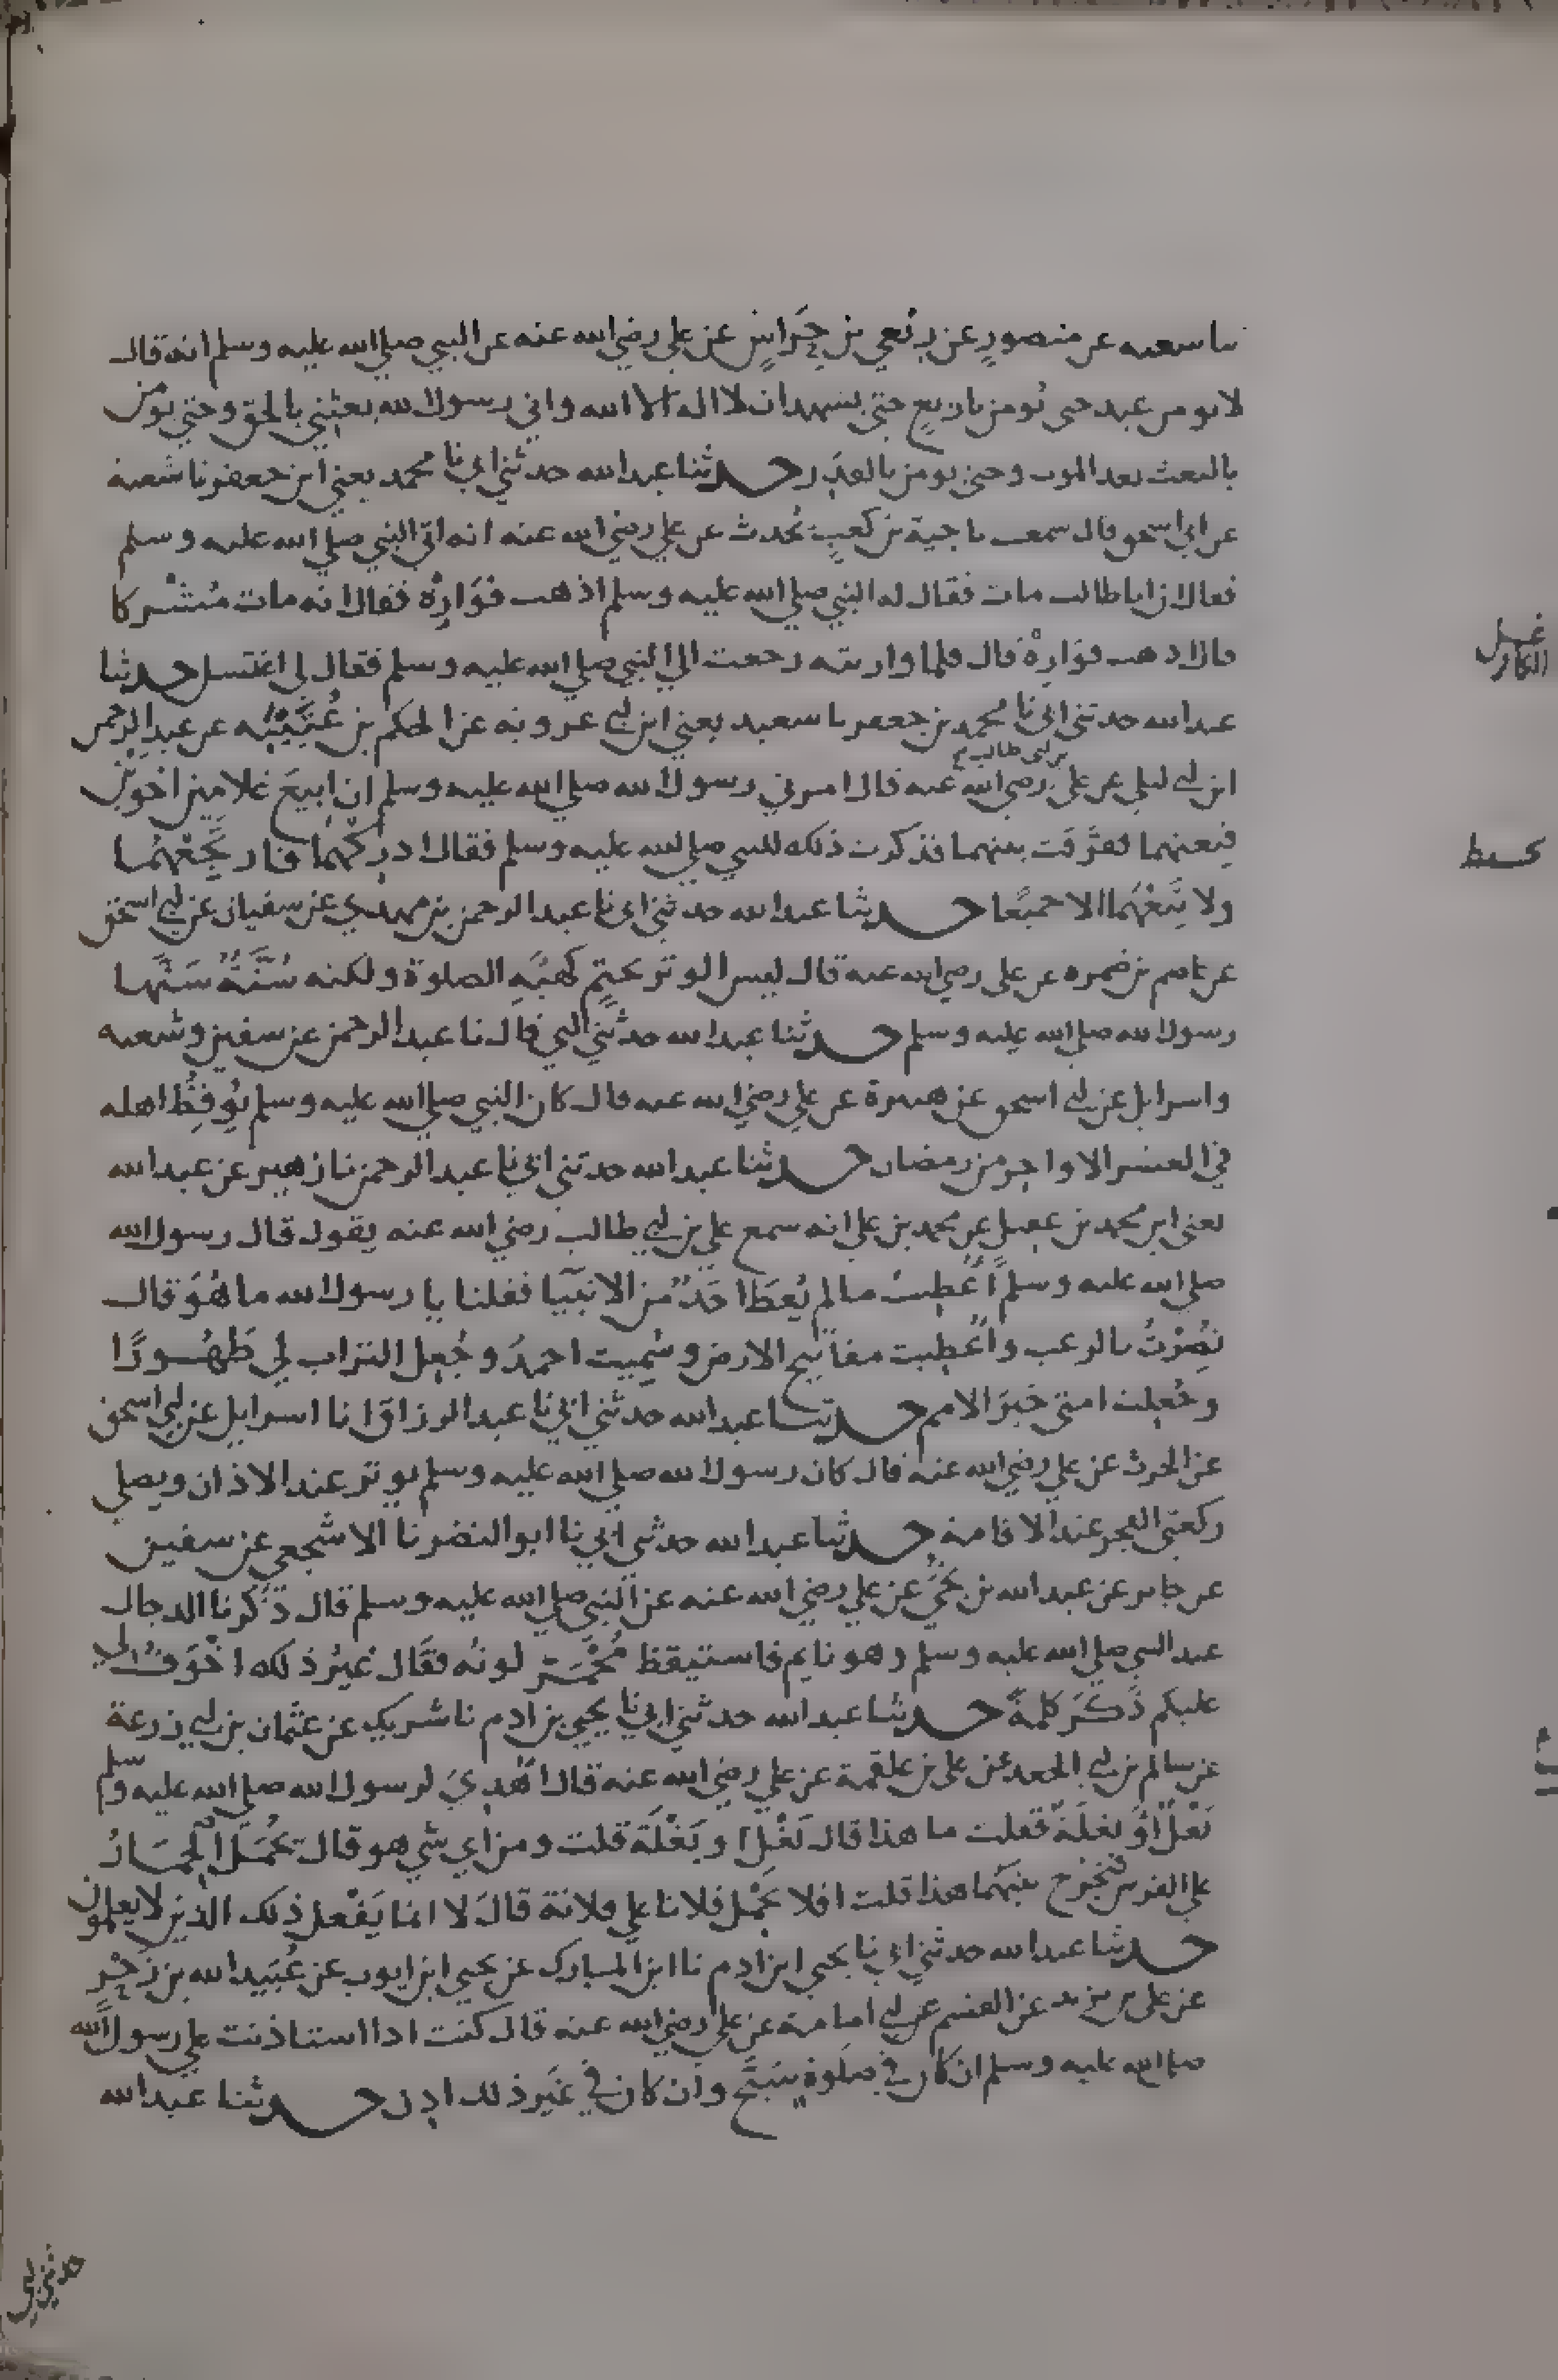 نا سعبه عن منصورٍ عن ربعي بن حِرَاشٍ عن علي رضي الله عنه عن النبي صلى الله عليه وسلم انه قال
لا يومن عبد حتى يُومن باربعٍ حتى يشهد ان لا اله الا الله واني رسول الله بعثني بالحق وحتى يومن
بالبعث بعد الموت وحتى يومن بالقدَر حدثنا عبد الله حدثني ابي نا محمد يعني ابن جعفر نا شعبة
عن ابي اسحق قال سمعت ناجية بن كعبٍ يُحدث عن علي رضي الله عنه انه اتى النبي صلى الله عليه وسلم
فقال ان ابا طالب مات فقال له النبي صلى الله عليه وسلم اذهب فوَارِهْ فقال انه مات مُشْركا
قال اذهب فوَارِهْ قال فلما واريته رجعت الى النبي صلى الله عليه وسلم فقال لي اغتسل حدثنا
عبد الله حدثني ابي نا محمد بن جعفر نا سعيد يعني ابن ابي عروبه عن الحكم بن عُتَيْبَه عن عبد الرحمن
بن ابي طالب
ابن ابي ليلى عن علي رضي الله عنه قال امرني رسول الله صلى الله عليه وسلم ان ابيعَ غلامين اخوَيْن
فبعتهما ففرَّقت بينهما فذكرت ذلك للنبي صلى الله عليه وسلم فقال ادركْهما فارتَجِعْهُما
ولا تَبِعْهُما الا جميعًا حدثنا عبد الله حدثني ابي نا عبد الرحمن بن مهدي عن سفيان عن ابي اسحق
عن عاصم بن ضمره عن علي رضي الله عنه قال ليس الوتر بحتمٍ كهيَّةِ الصلوة ولكنه سُنَّةٌ سَنَّها
رسول الله صلى الله عليه وسلم حدثنا عبد الله حدثني ابي قال نا عبد الرحمن عن سفين وشعبه
واسرايل عن ابي اسحق عن هبيرة عن علي رضي الله عنه قال كان النبي صلى الله عليه وسلم يُوقِظُ اهله
في العشر الاواخر من رمضان حدثنا عبد الله حدثني ابي نا عبد الرحمن نا زهير عن عبد الله
يعني ابن محمد بن عقيل عن محمد بن علي انه سمع علي بن ابي طالب رضي الله عنه يقول قال رسول الله
صلى الله عليه وسلم اُعْطِيتُ ما لم يُعْطَ احَدٌ من الانبيَآ فقلنا يا رسول الله ما هُوَ قال
نُصِرْتُ بالرعب واُعْطِيت مفاتيح الارض وسُمِيت احمدُ وجُعِل التراب لي طَهُورًا
وجُعِلت امتي خيرَ الامم حدثنا عبد الله حدثني ابي نا عبد الرزاق انا اسرايل عن ابي اسحق
عن الحرث عن علي رضي الله عنه قال كان رسول الله صلى الله عليه وسلم يوتر عند الاذان ويصلي
ركعتي الفجر عند الاقامة حدثنا عبد الله حدثني ابي نا ابو النضر نا الاشجعي عن سفين
عن جابر عن عبد الله بن نُجَيٍّ عن علي رضي الله عنه عن النبي صلى الله عليه وسلم قال ذَكرنا الدجال
عند النبي صلى الله عليه وسلم وهو نايم فاستيقظ مُحْمَرٌّ لونُه فقَال غيرُ ذلك اخْوَفُ لي
عليكم ذَكَرَ كلمةً حدثنا عبد الله حدثني ابي نا يحيى بن ادم نا شريك عن عثمان بن ابي زرعة
عن سالم بن ابي الجعد عن علي بن علقمة عن علي رضي الله عنه قال اُهْدِيَ لرسول الله صلى الله عليه وسلم
بَغْلٌ اوْ بَغلَةٌ فقلت ما هذا قال بَغْلٌ او بَغْلَةٌ قلت ومن اي شي هو قال يُحْمَلُ الحِمَارُ
على الفرس فيَخْرُج بينهُما هذا قلت افلا نَحْمِل فلانا على فلانة قالَ لا انما يَفْعل ذلك الذين لا يعلمون
حدثنا عبد الله حدثني ابي نا يحيى ابن ادم نا ابن المبارك عن يحيى ابن ايوب عن عُبَيد الله بن زَحْر
عن علي بن يزيد عن القسم عن ابي امامة عن علي رضي الله عنه قال كنت اذا استاذنت على رسول الله
صلى الله عليه وسلم ان كان في صلَوة سَبَّحَ وان كان في غَير ذلك اذن حدثنا عبد الله
غسل
الكافر
حدثني ابي